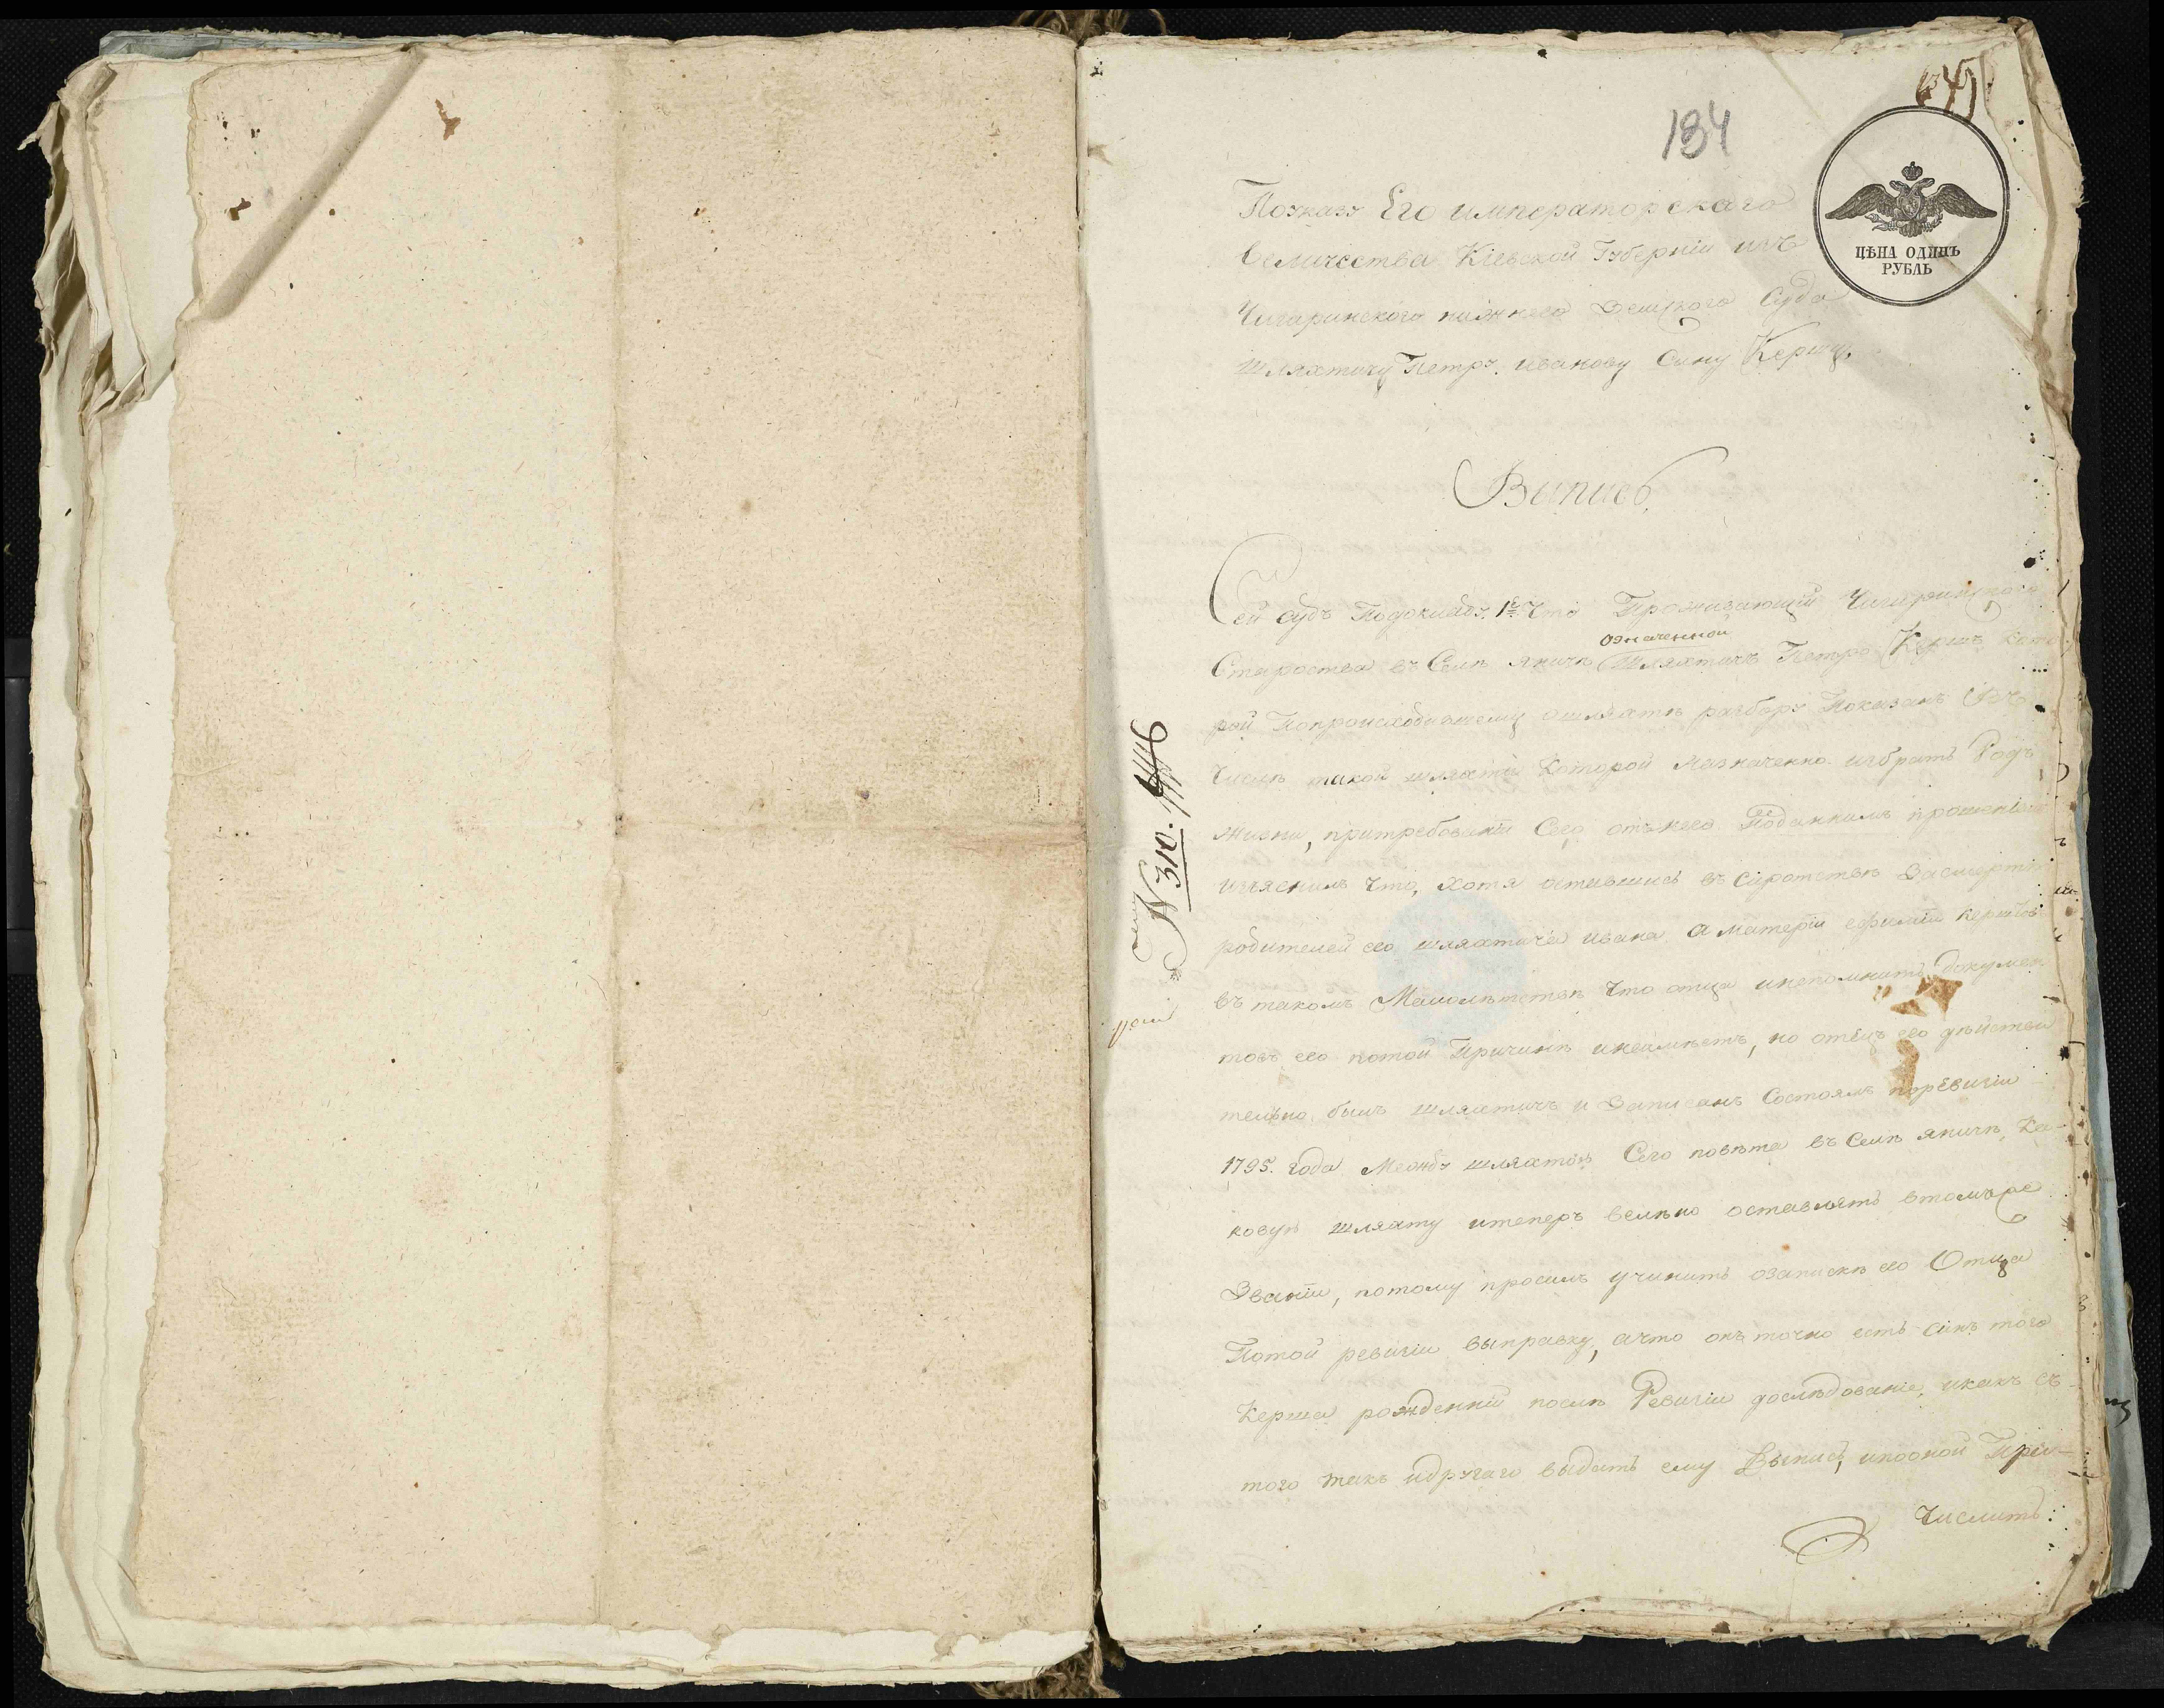 184
ЦѢНА ОДИНЪ
РУБЛЬ
Поуказу Его императорскаго
величества Кіевской Губерніи изъ
Чигиринского нижнего Земского Суда
шляхтичу Петру иванову Сыну Кершу,
Выпись,
Сей судъ Подокладу. 1е Что Проживающій Чигиринского
Староства въ Селѣ яничѣ означенной шляхтичъ Петръ Кершъ кото
рой Попроисходившему ошляхтѣ разбору Показанъ Въ
Числѣ такой шляхты Которой Назначенно избрать Родъ
жизни, притребованіи Сего, отънего Поданнимъ прошеніе
изъяснилъ что, хотя оставшись въ Сиротствѣ Засмертію
родителей его шляхтича ивана, а матери ефиміи Кершовъ
въ такомъ Малолѣтствѣ что отца инепомнитъ докумен
товъ его потой Причинѣ инеимѣетъ, но отецъ его дѣйстви
тельно былъ шляхтичъ и Записанъ Состоялъ поревизіи
1795. года Между шляхтою Сего повѣта въ Селѣ яничѣ, Ка-
ковую шляхту итеперъ велѣно оставлять втомъже
Званіи, потому просилъ учинить озапискѣ его Отца
Потой ревизіи выправку, ачто онъ точно есть синъ того
Керша рожденній послѣ Ревизіи дослѣдованіе, икакъ съ
того такъ идругаго выдать ему Выпись, ипооной При-
числить
№ 310.